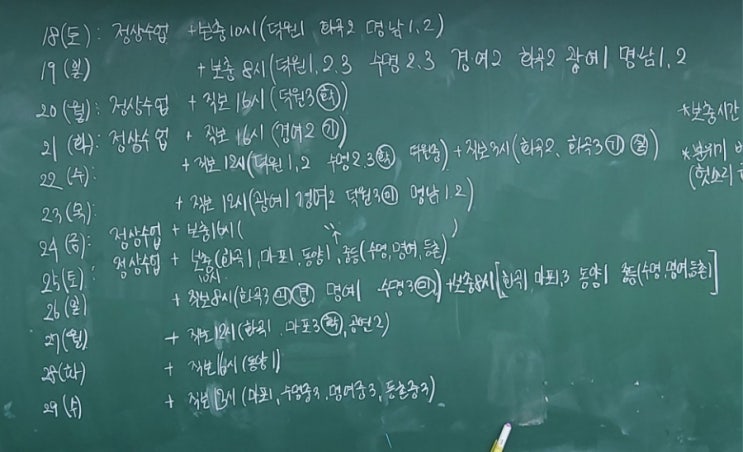 18(토): 정상수업 + 보충10시(덕원1 화곡2 명남1,2)
19(일) + 보충8시(덕원1.2.3 수명2.3 경여2 화곡2 광여1 명남1,2
20(월): 정상수업 + 직보16시(덕원3㉻)
21(화): 정상수업 + 직보16시(경여2 ㉮)
22(수): + 직보12시(덕원1,2 수명2.3 덕원중) + 직보3시(화곡2, 화곡3
23(목): + 직보12시(광여1 경여2 덕원3 명남1.2)
24(금): 정상수업 + 보충16시( )
25(토): 정상수업 + 보충10시(화곡1, 마포1, 동양1, 중등(수명,명여,등촌)
26(일) + 직보8시(화곡3 명여1 수명3) + 보충8시[화곡1 마포1,3 동양1 중등(수명,명여,등촌)]
27(월) + 직보12시(화곡1. 마포3, 공연2)
28(화) + 직보16시(동양1)
29(수) + 직보13시(마포1, 수명중3, 명여중3, 등촌중3)
*보충시간
*분위기
(헛소리